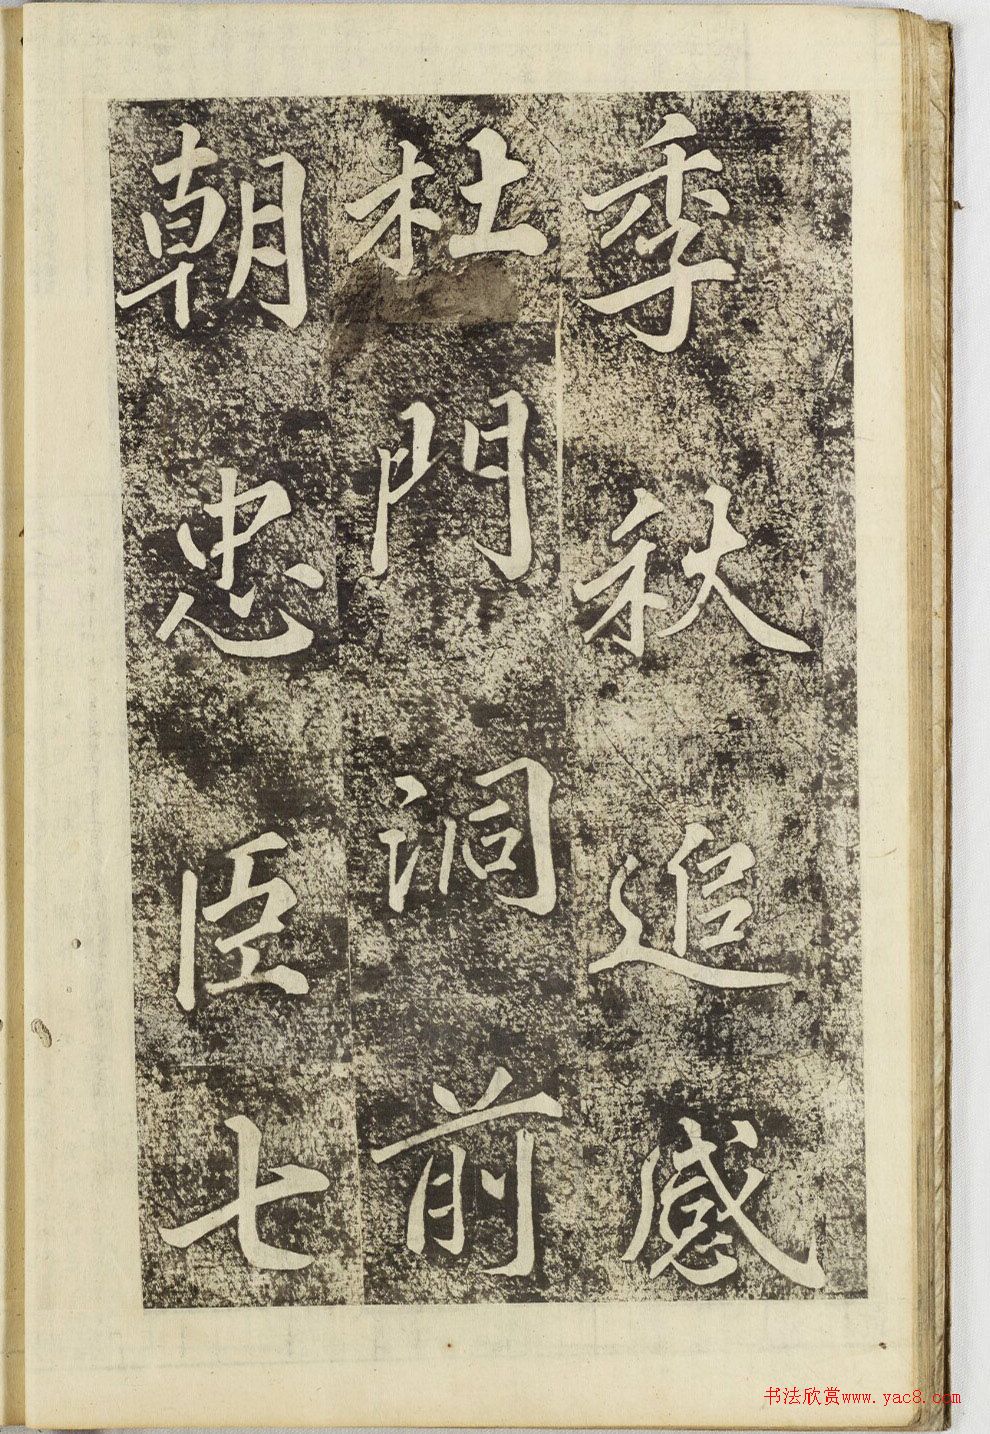 季秋追感
杜門洞前
朝忠臣七
书法欣赏www.yac8.com